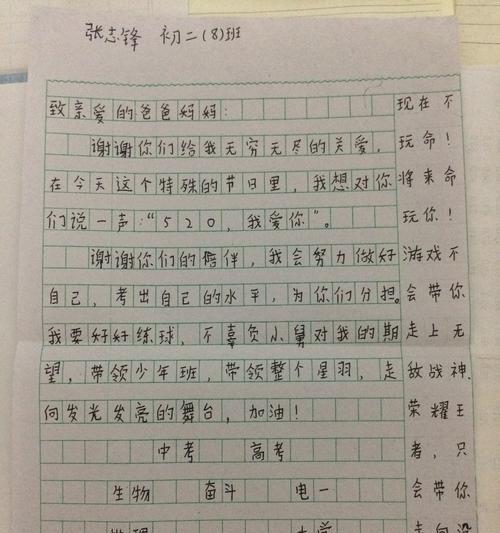 张志锋 初二(8)班
致亲爱的爸爸妈妈:
谢谢你们给我无穷无尽的关爱,
在今天这个特殊的节日里,我想对你
们说一声:“520,我爱你”。
谢谢你们的陪伴,我会努力做好
自己,考出自己的水平,为你们分担。
我要好好练球,不辜负小舅对我的期
望,带领少年班,带领整个星羽,走
向发光发亮的舞台,加油!
中考 高考
生物 奋斗 电一
地理 大学
现在不
玩命!
将来命
玩你!
游戏不
会带你
走上无
敌战神.
荣耀王
者,只
会带你
走向没